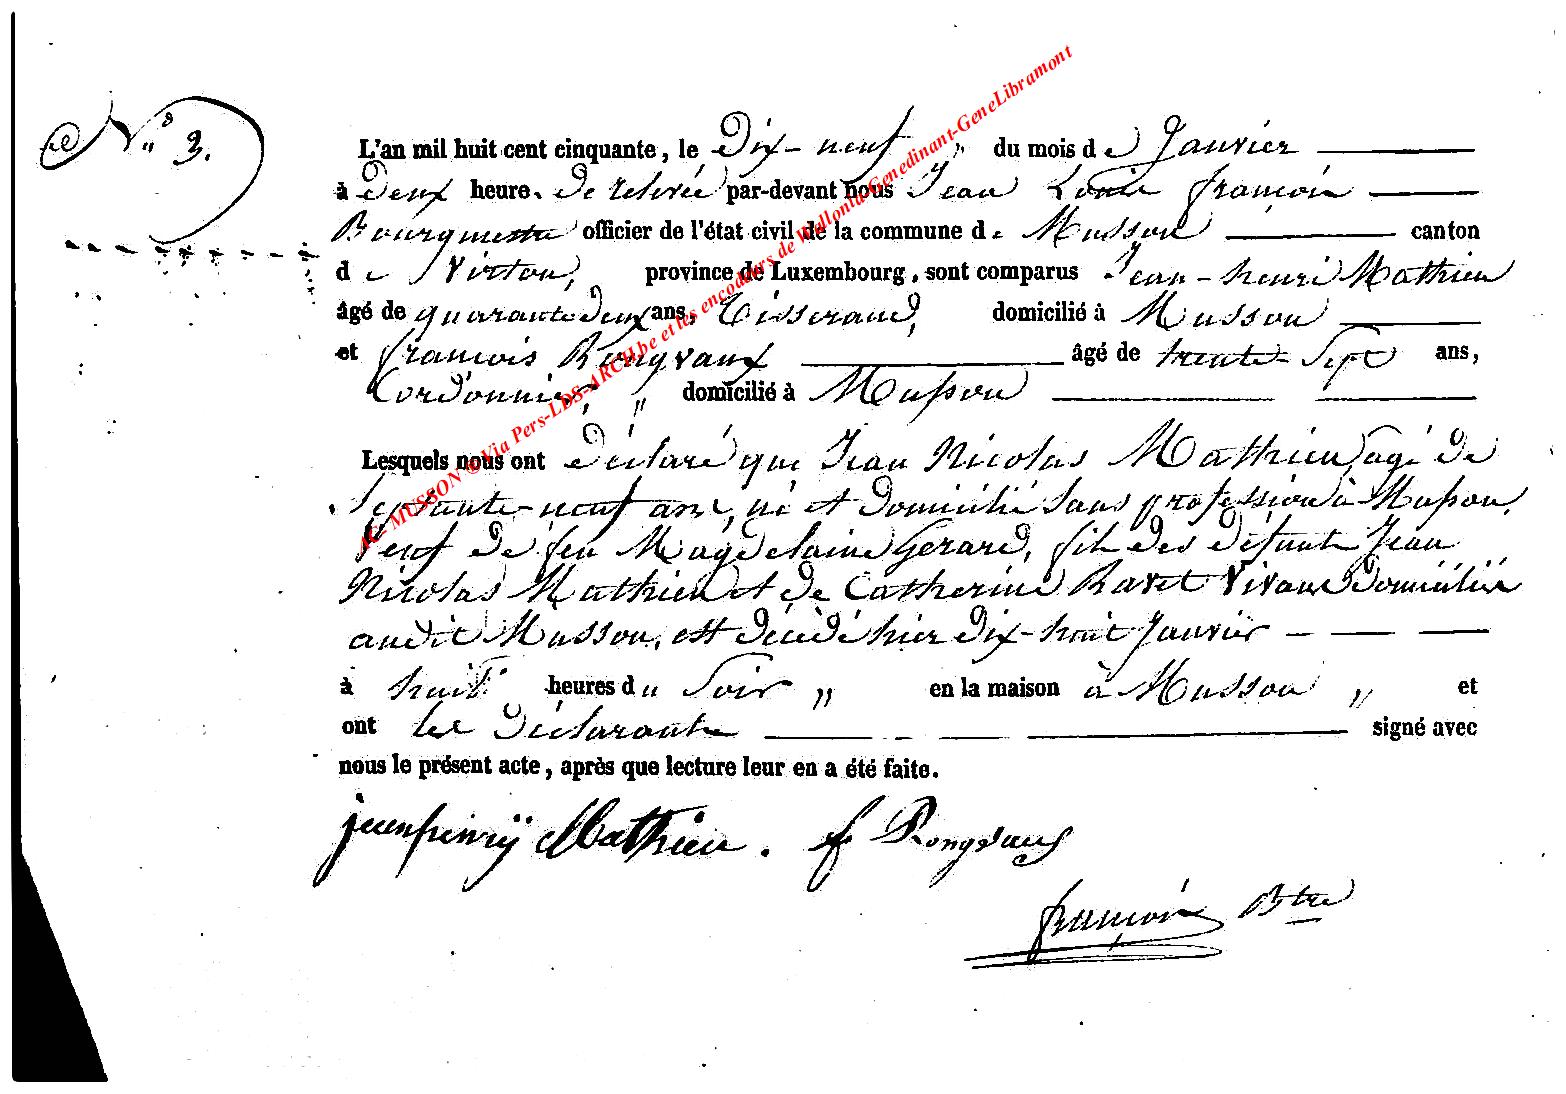 N.º 3.
L'an mil huit cent cinquante, le Dix-neuf " du mois de Janvier
à Deux heure. De relevée par-devant nous Jean Louis françois
Bourgmestre officier de l'état civil de la commune de Musson canton
de Virton, province de Luxembourg, sont comparus Jean-henri Mathieu
âgé de quarante Deux ans, Tisserand, domicilié à Musson
et françois Rongvaux âgé de trente-Sept ans,
Cordonnier, " domicilié à Musson
Lesquels nous ont Déclaré que Jean Nicolas Mathieu, agé de
Septante-neuf ans, né et Domicilié Sans profession à Musson,
Veuf de feu Magdelaine Gerard, fils des défunts Jean
Nicolas Mathieu et de Catherine Ravet Vivans Domiciliés
audit Musson, est décédé hier dix-huit Janvier
à huit heures du Soir " en la maison à Musson " et
ont les Déclarants signé avec
nous le présent acte, après que lecture leur en a été faite.
jean henrÿ Mathieu. f Rongvaux
françois Btre
AC. MUSSON ® Via Pers-LDS-ARCH.be et les encodeurs de Wallonia-Genedinant-GeneLibramont